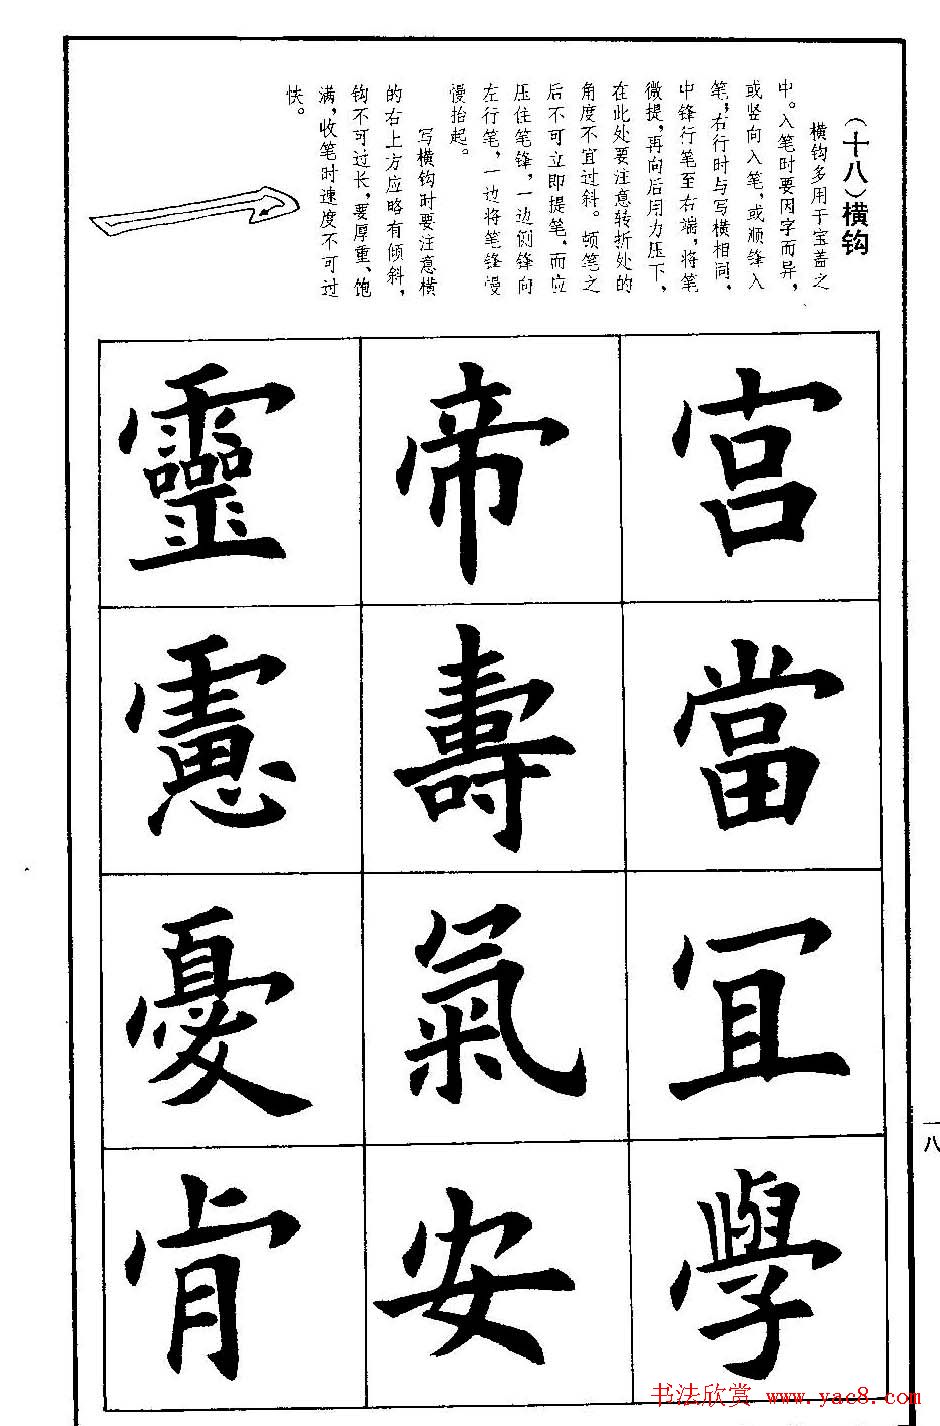 （十八）横钩
横钩多用于宝盖之
中。入笔时要因字而异，
或竖向入笔，或顺锋入
笔；右行时与写横相同，
中锋行笔至右端，将笔
微提，再向后用力压下，
在此处要注意转折处的
角度不宜过斜。顿笔之
后不可立即提笔，而应
压住笔锋，一边侧锋向
左行笔，一边将笔锋慢
慢抬起。
写横钩时要注意横
的右上方应略有倾斜，
钩不可过长，要厚重、饱
满，收笔时速度不可过
快。
宫當冝學
帝壽氣安
靈憲憂肯
一八
书法欣赏 www.yac8.com